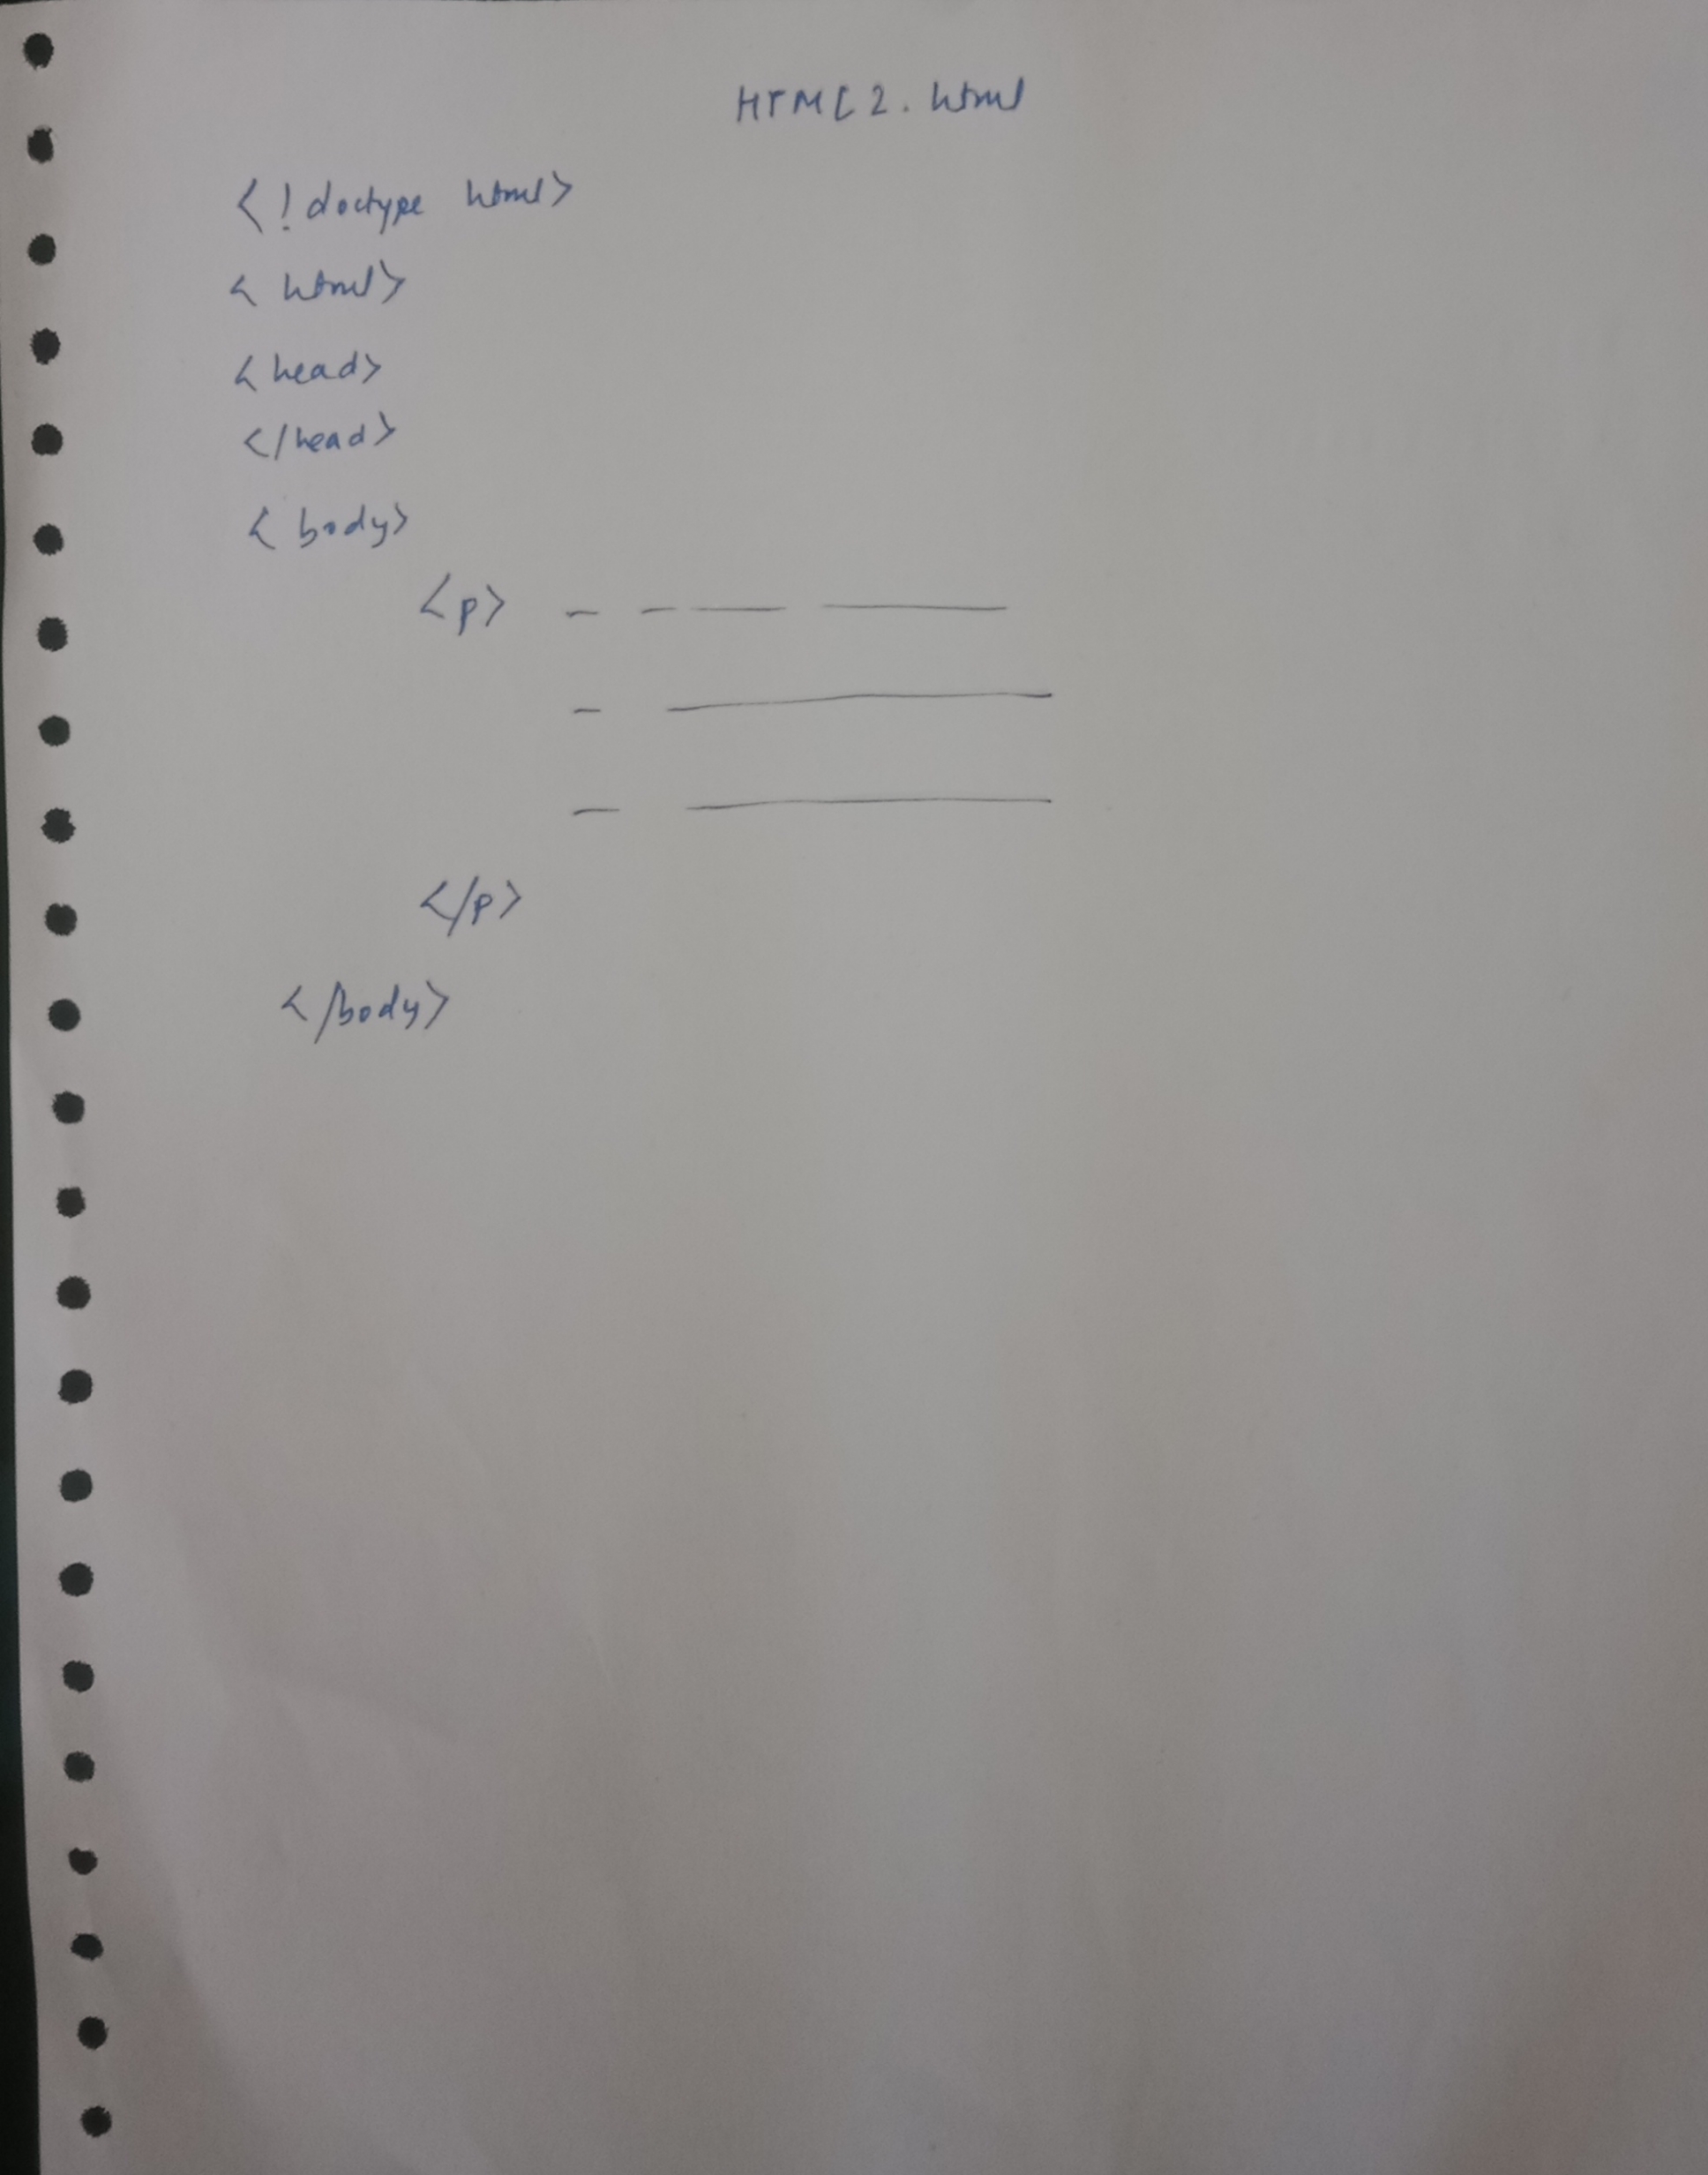 HTML2.html
<!doctype html>
<html>
<head>
</head>
<body>
<p>
</p>
</body>